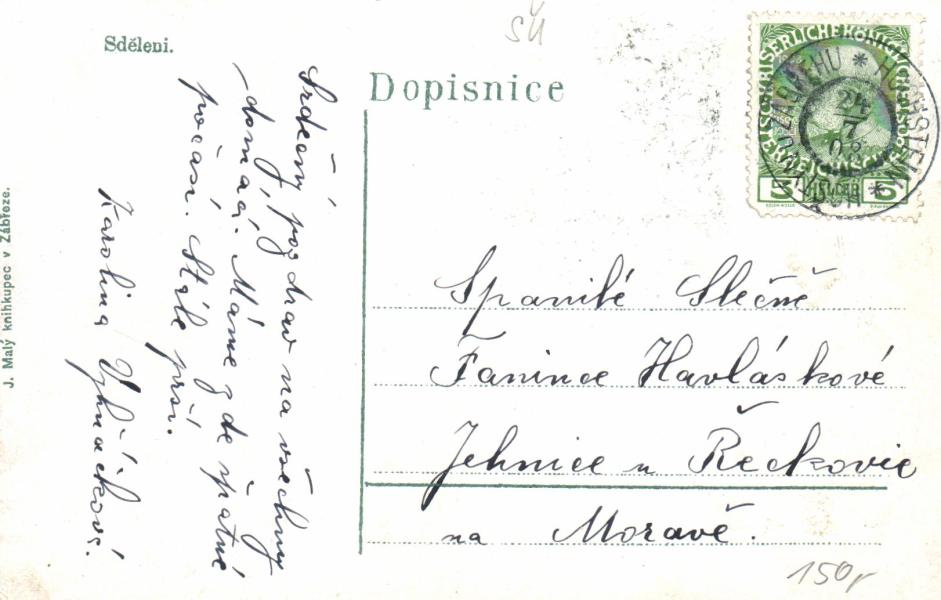 Sdělení.
Dopisnice
Srdečný pozdrav na všechny
domácí. Máme zde špatné
počasí. Stále prší.
Karolina
Spanilé Slečně
Fanince Havláskové
Jehnice u Řečkovic
na Moravě.
J. Malý knihkupec v Zábřeze.
HOHENSTEIN
24
7
08
5 HELLER 5
150,-